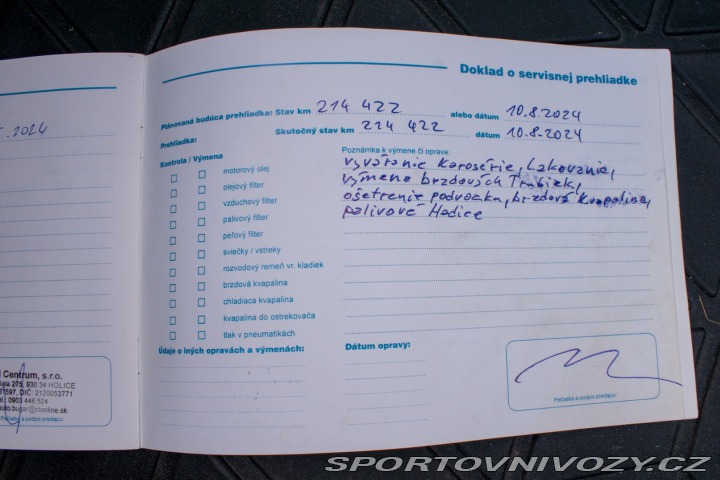 .2024
l Centrum, s.r.o.
930 34 HOLICE
DIČ: 2120053771
Pečiatka a podpis predajcu
Doklad o servisnej prehliadke
Plánovaná budúca prehliadka: Stav km 214 422 alebo dátum 10.8.2024
Prehliadka: Skutočný stav km 214 422 dátum 10.8.2024
Kontrola / Výmena
motorový olej
olejový filter
vzduchový filter
palivový filter
peľový filter
sviečky / vstreky
rozvodový remeň vr. kladiek
brzdová kvapalina
chladiaca kvapalina
kvapalina do ostrekovača
tlak v pneumatikách
Údaje o iných opravách a výmenách:
Poznámka k výmene či oprave:
vyváranie Karosérie, Lakovanie,
výmena brzdových Trubiek,
ošetrenie podvozku, brzdová Kvapalina,
palivové Hadice
Dátum opravy:
Pečiatka a podpis predajcu
SPORTOVNIVOZY.CZ